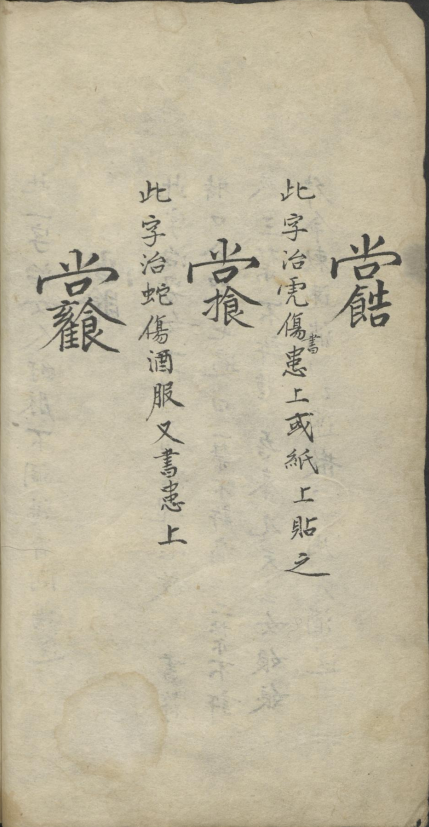 此字治虎傷書患上或紙上貼之
此字治蛇傷酒服又書患上